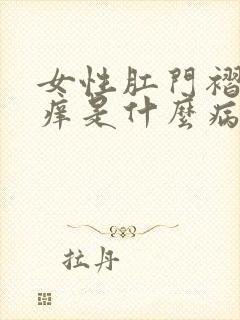 女性肛門褶
痒是什麼病
拉丹